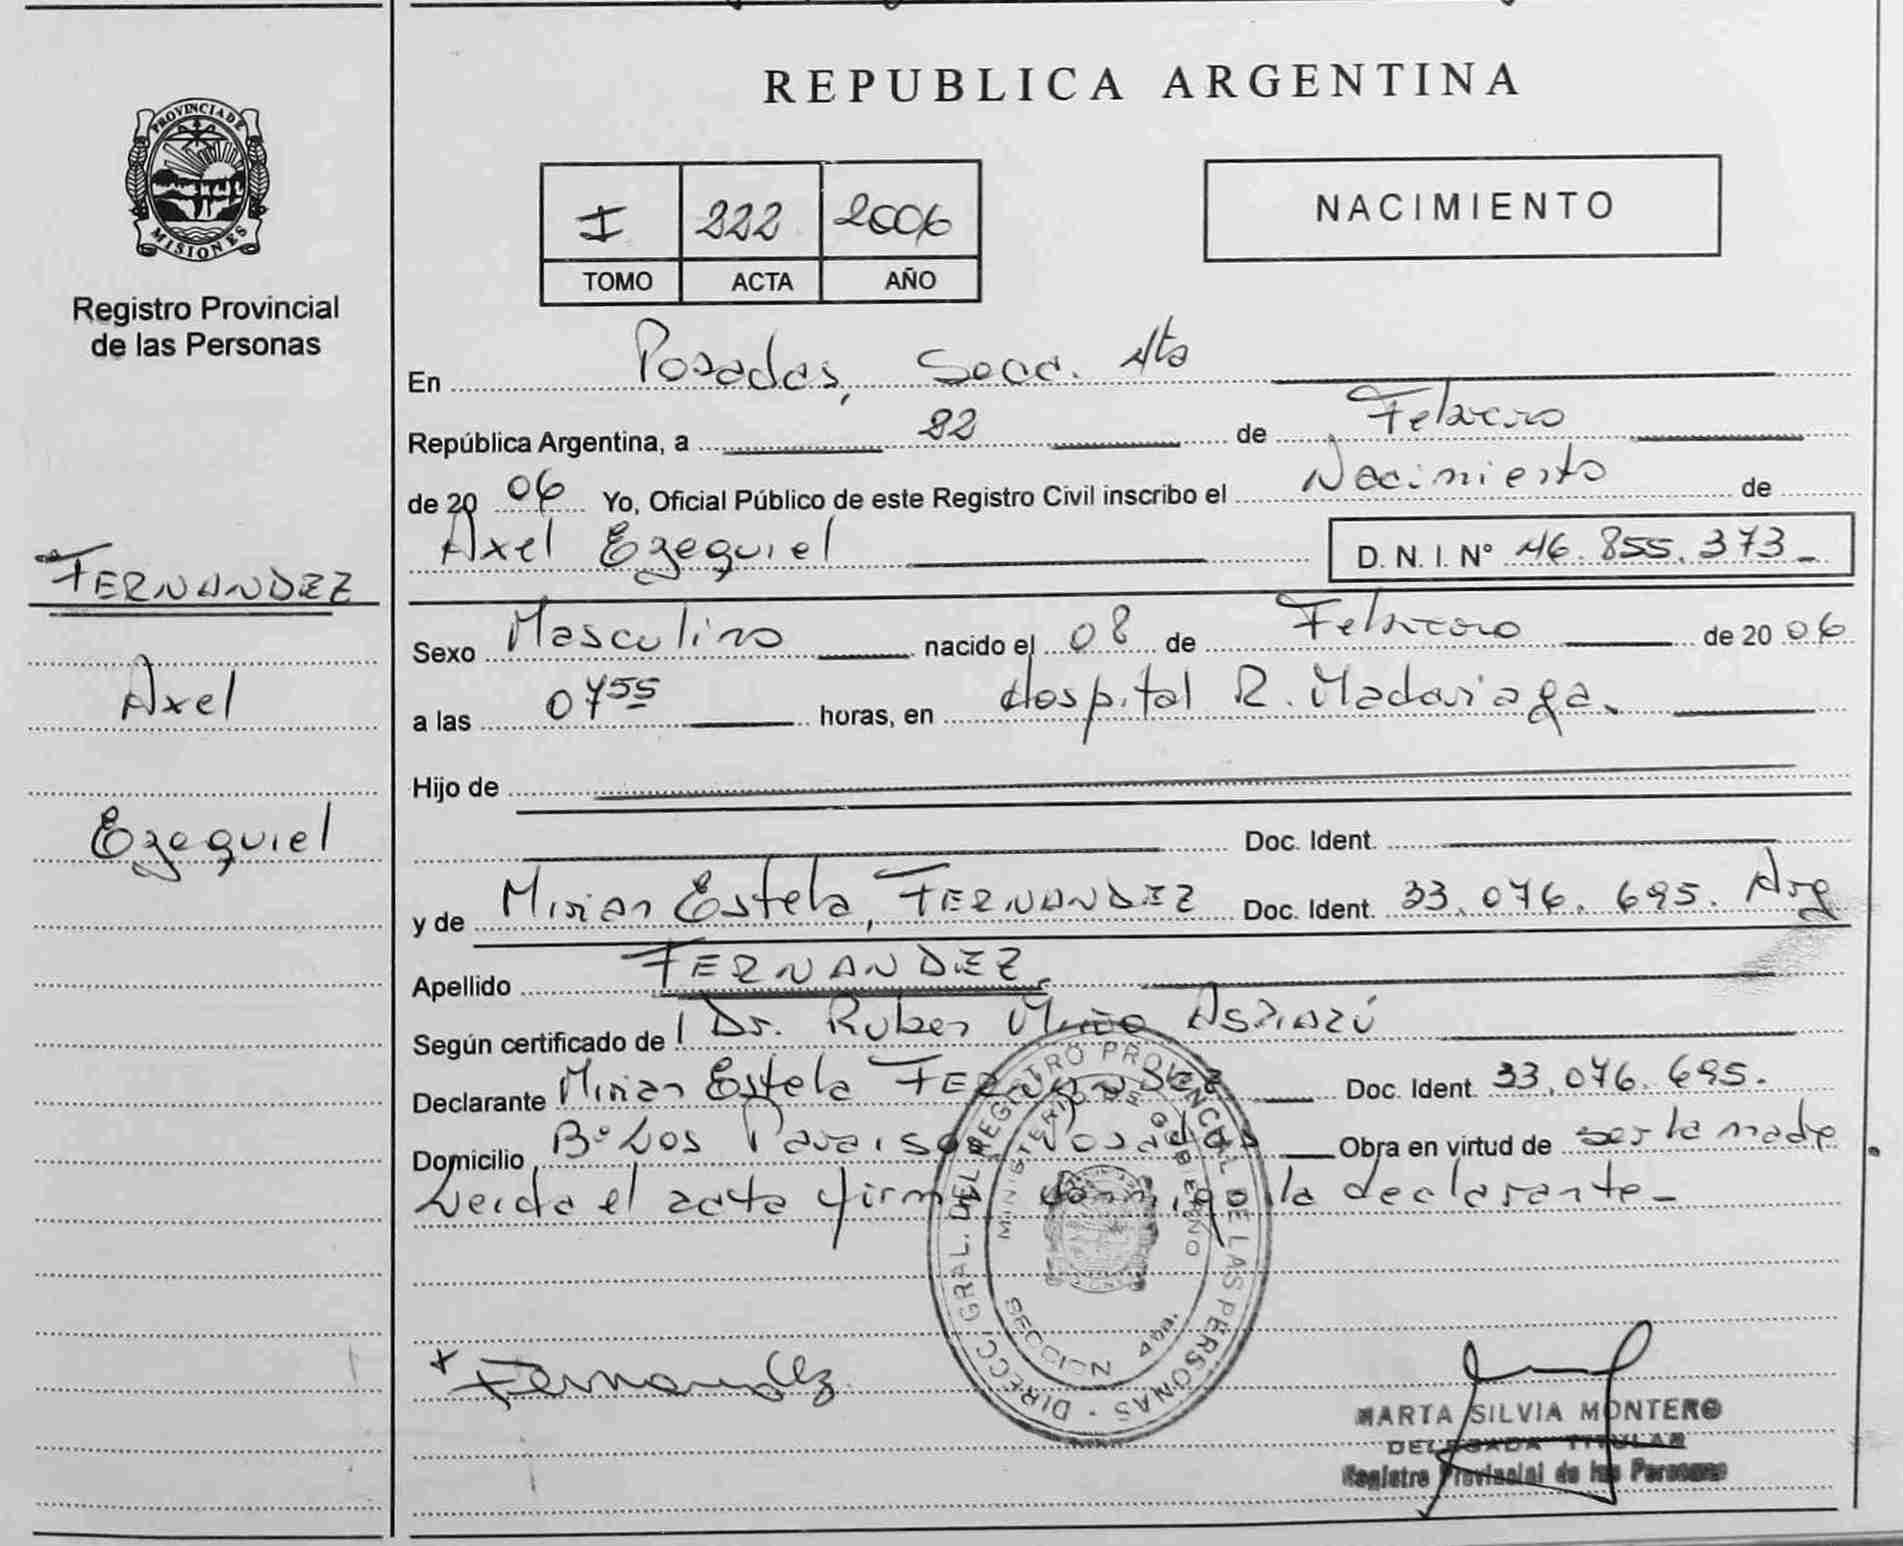 REPUBLICA ARGENTINA
PROVINCIA DE MISIONES
Registro Provincial
de las Personas
I 222 2006
TOMO ACTA AÑO
NACIMIENTO
En Posadas, Secc. 4ta
República Argentina, a 22 de Febrero
de 2006 Yo, Oficial Público de este Registro Civil inscribo el Nacimiento de
Axel Ezequiel D. N. I. N° 46.855.373
FERNANDEZ
Axel
Ezequiel
Sexo Masculino nacido el 08 de Febrero de 2006
a las 07 55 horas, en Hospital R. Madariaga.
Hijo de
Doc. Ident.
y de Mirian Estela, FERNANDEZ Doc. Ident. 33.076.695. Arg
Apellido FERNANDEZ
Según certificado de Dr. Ruben
Declarante Mirian Estela FERNANDEZ Doc. Ident. 33.076.695.
Domicilio B° Los Paraisos Posadas Obra en virtud de ser la madre
Leida el acta firma conmigo la declarante
DIRECC. GRAL. DEL REGISTRO PROVINCIAL DE LAS PERSONAS
MINISTERIO DE GOBIERNO
SECCION 4ba.
x Fernandez
MARTA SILVIA MONTERO
DELEGADA TITULAR
Registro Provincial de las Personas